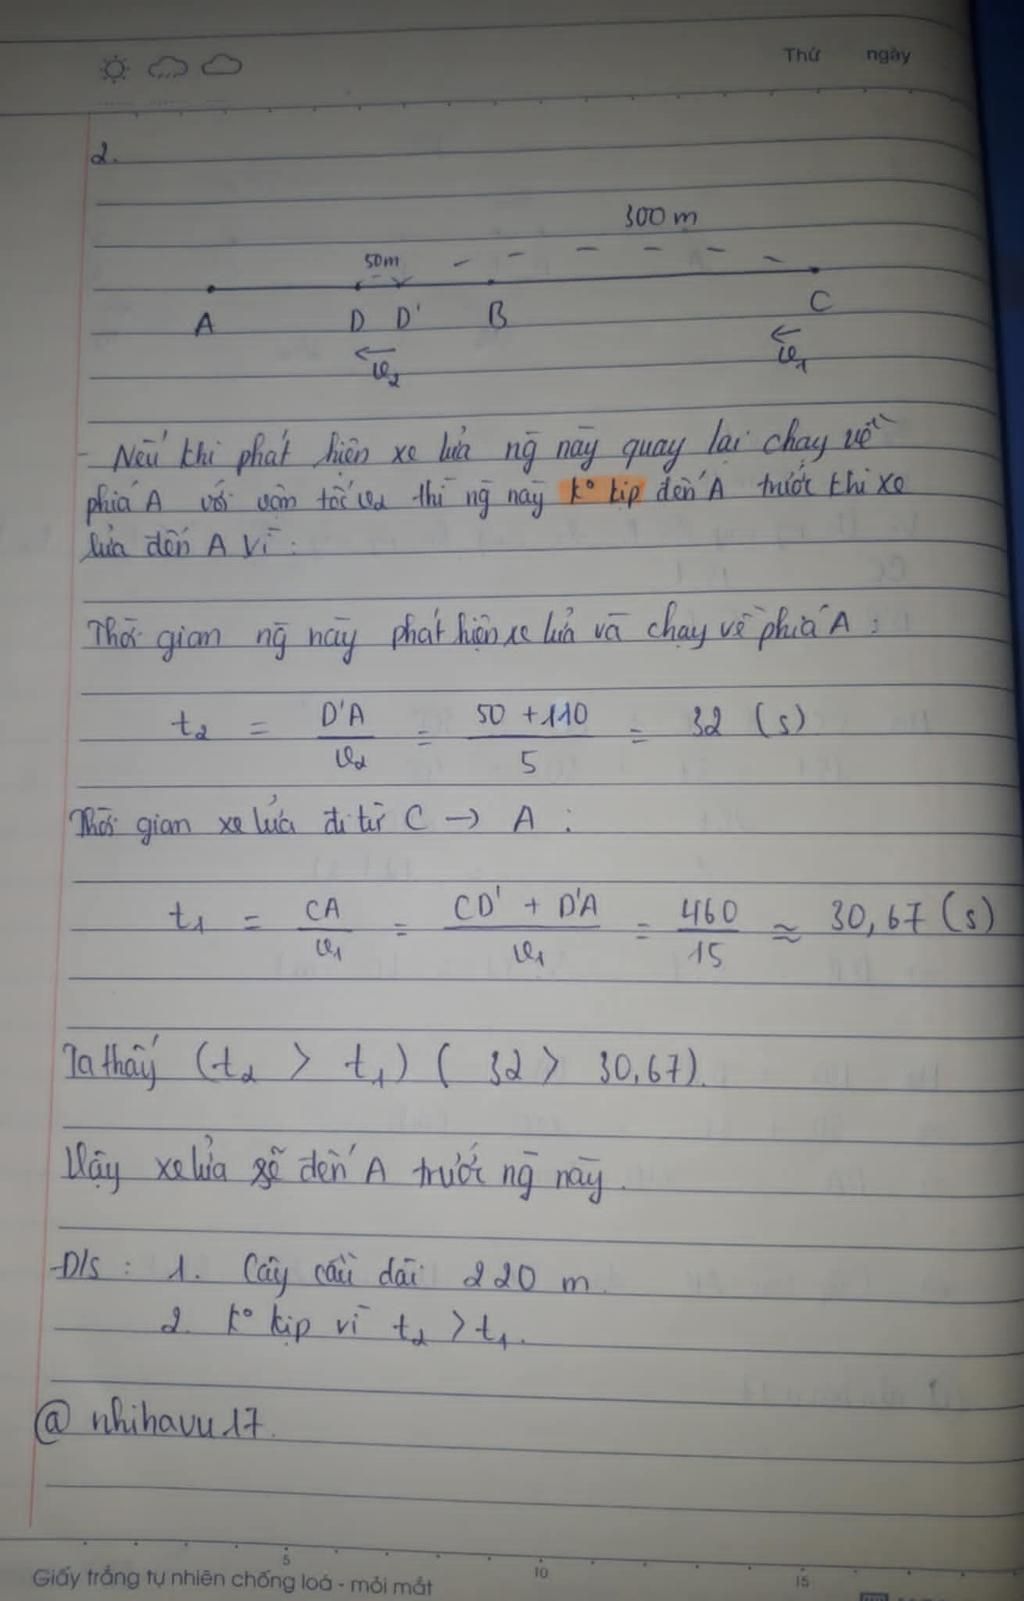 Thứ ngày
2.
300 m
50m
A D D' B C
v₂ v₁
- Nếu khi phát hiện xe lửa ng̃ này quay lại chạy về
phía A với vận tốc v₂ thì ng̃ này k° kịp đến A trước khi xe
lửa đến A vì :
Thời gian ng̃ này phát hiện xe lửa và chạy về phía A :
t₂ = D'A / v₂ = 50 + 110 / 5 = 32 (s)
Thời gian xe lửa đi từ C → A :
t₁ = CA / v₁ = CD' + D'A / v₁ = 460 / 15 ≈ 30,67 (s)
Ta thấy (t₂ > t₁) ( 32 > 30,67).
Vậy xe lửa sẽ đến A trước ng̃ này.
Đ/s : 1. Cây cầu dài 220 m.
2. k° kịp vì t₂ > t₁.
@ nhihavu17.
5 10 15
Giấy trắng tự nhiên chống loá - mỏi mắt